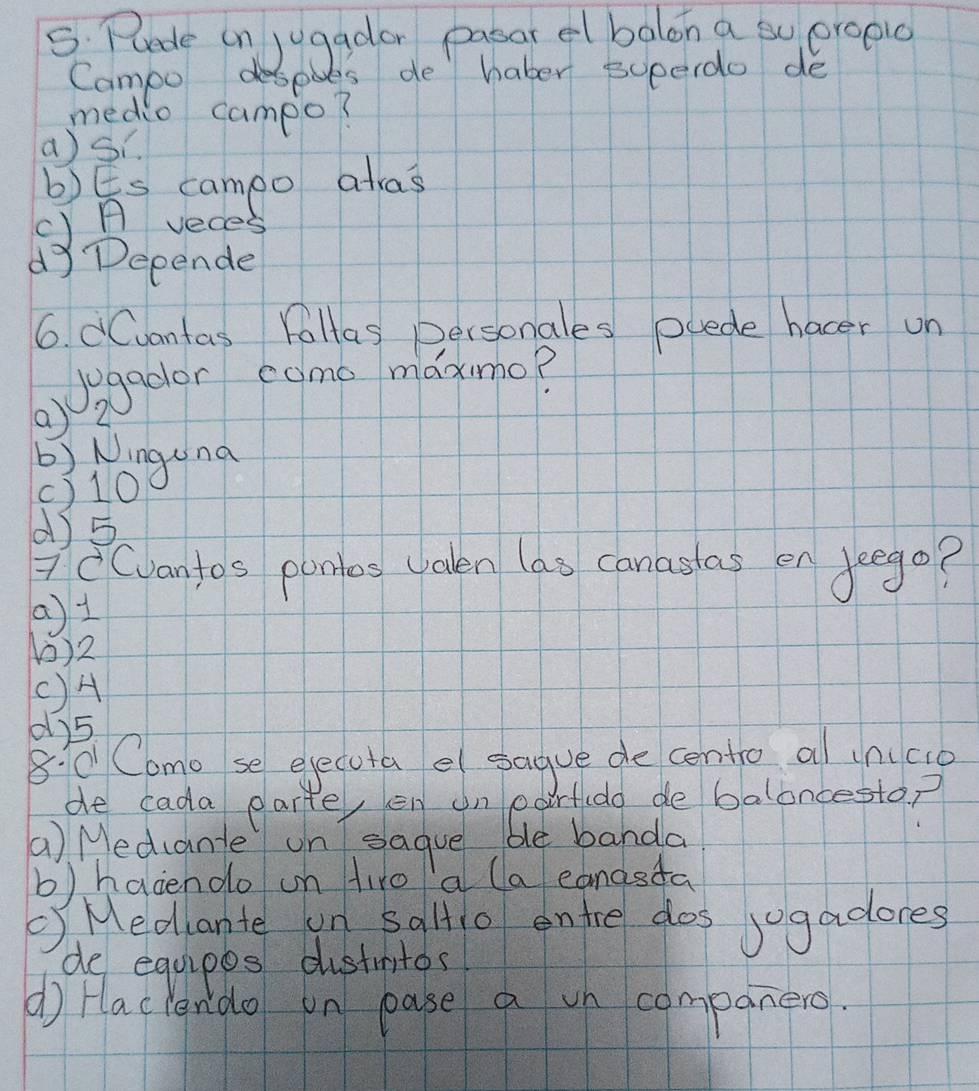 5. Puede un jugador pasar el balón a su propio
Campo después de haber superdo de
medio campo?
a) Sí.
b) Es campo atrás
c) A veces
d) Depende
6. ¿Cuantas Faltas personales puede hacer un
jugador como máximo?
a) 2
b) Ninguna
c) 10
d) 5
7. ¿Cuantos puntos valen las canastas en jeego?
a) 1
b) 2
c) 4
d) 5
8. ¿Como se ejecuta el saque de centro al inicio
de cada parte, en un partido de baloncesto.?
a) Mediante un saque de banda.
b) haciendo un tiro a la canasta
c) Mediante un saltio entre dos jugadores
de equipos distintos.
d) Haciendo un pase a un compañero.